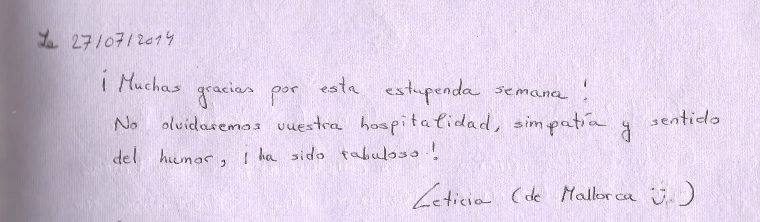 Le 27/07/2014
¡Muchas gracias por esta estupenda semana!
No olvidaremos vuestra hospitalidad, simpatía y sentido
del humor, ¡ha sido fabuloso!
Leticia (de Mallorca :))